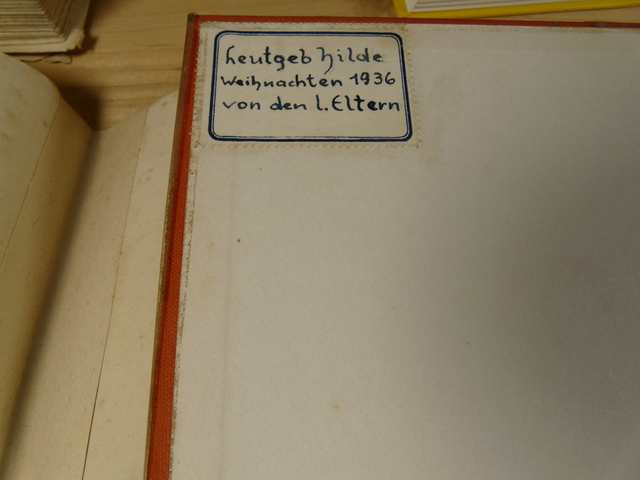 Leutgeb Hilde
Weihnachten 1936
von den l. Eltern